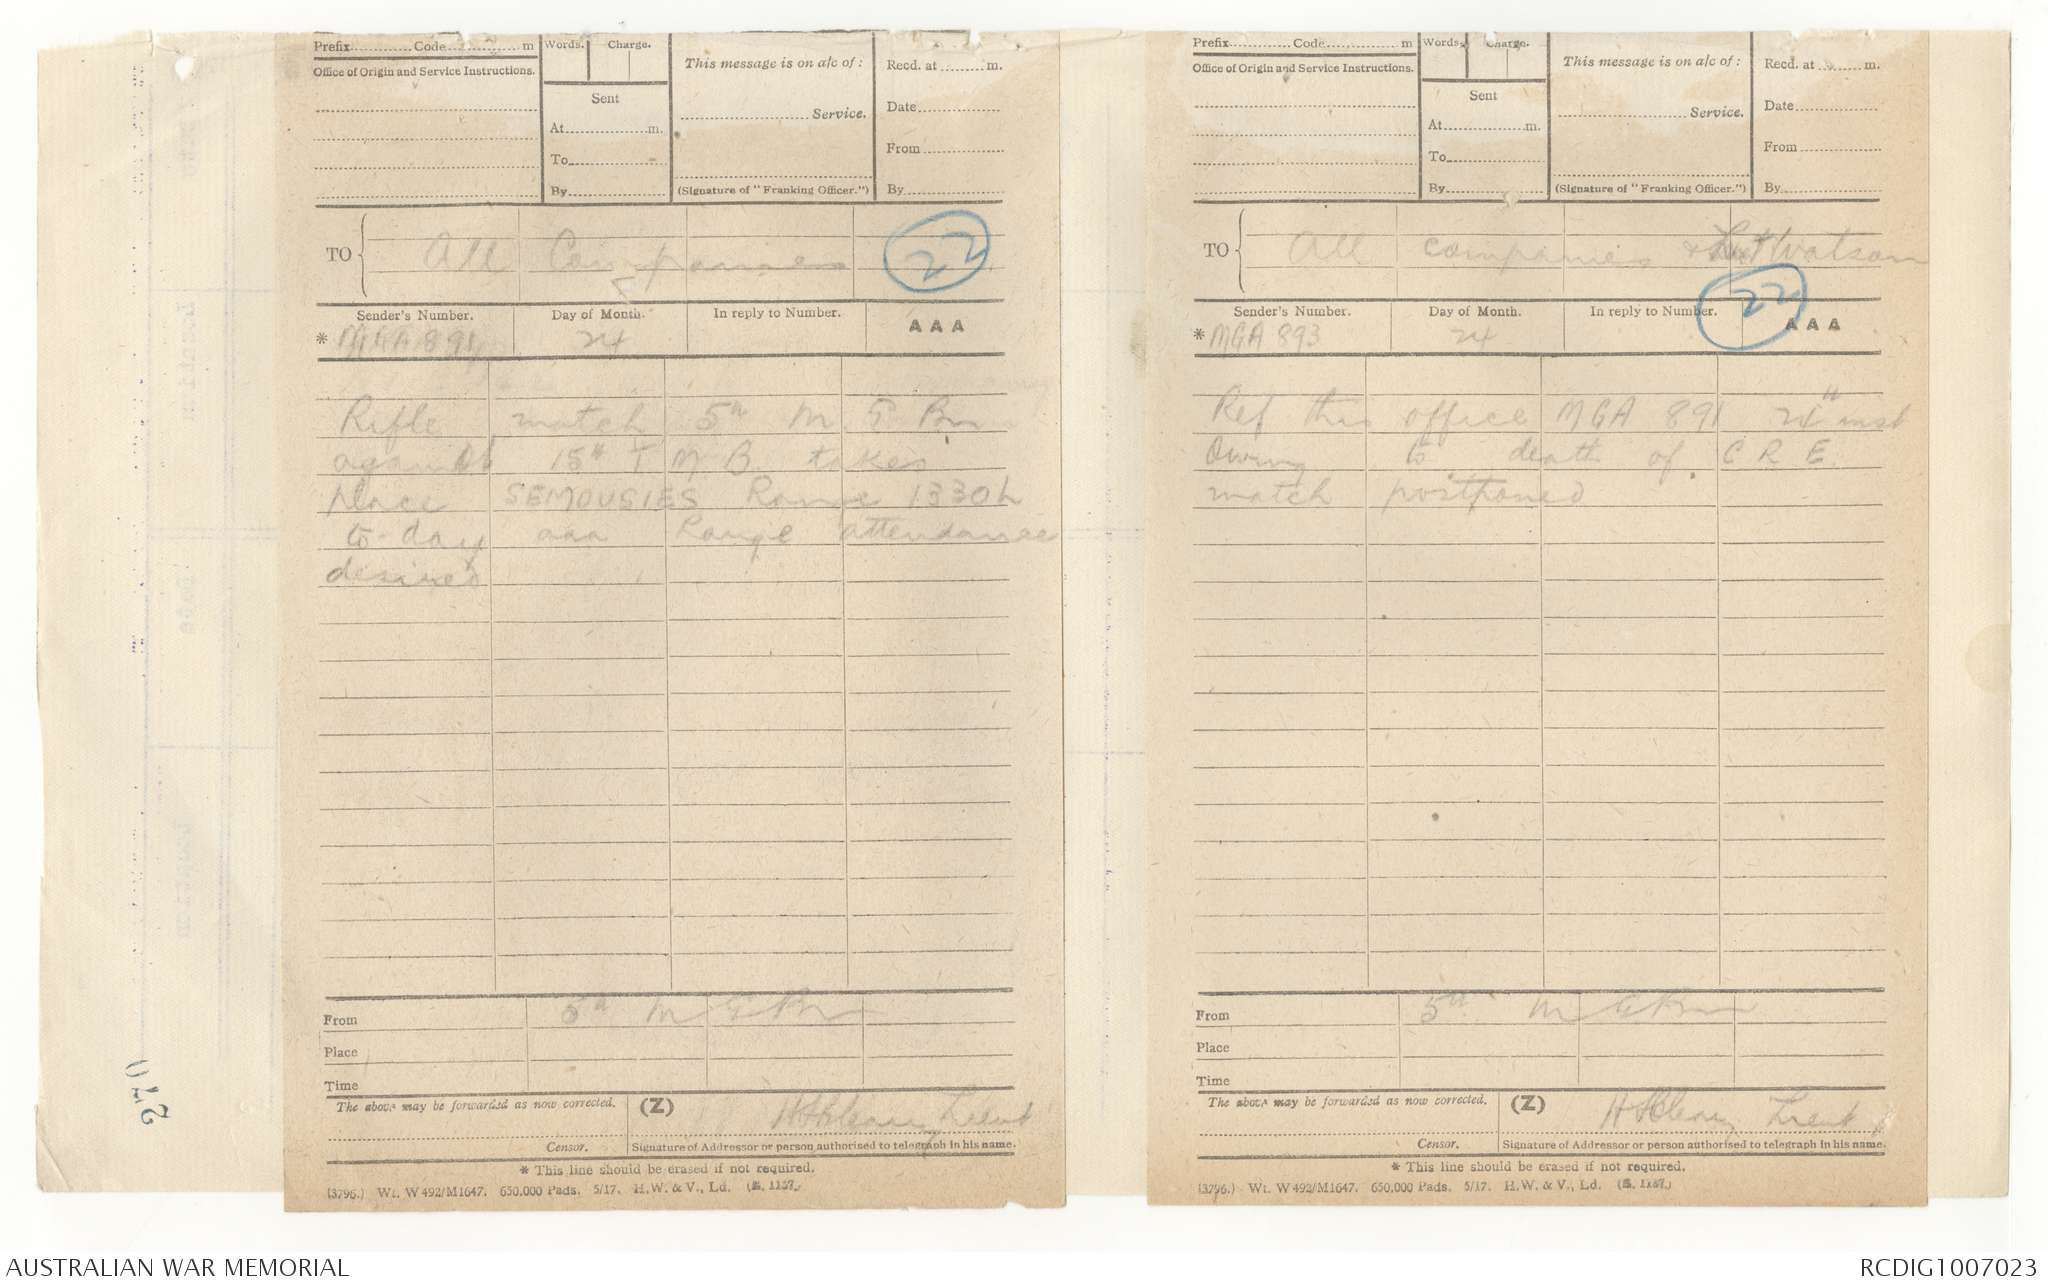 Prefix............Code...............m
Words.
Charge.
Office of Origin and Service Instructions.
This message is on a/c of :
Recd. at .........m.
Sent
Service.
Date
At..................m.
From
To
By
(Signature of "Franking Officer.")
By
TO
All Companies
22
Sender's Number.
Day of Month.
In reply to Number.
AAA
* MGA 891
24
Rifle match 5th M G Bn
against 15th T M B. takes
place SEMOUSIES Range 1330h
to-day aaa Range attendance
desired
From
5th M G Bn
Place
Time
The above may be forwarded as now corrected.
(Z)
Lieut
Censor.
Signature of Addressor or person authorised to telegraph in his name.
* This line should be erased if not required.
(3796.) Wt. W492/M1647. 650,000 Pads. 5/17. H.W. & V., Ld. (E. 1187.)
Prefix............Code...............m
Words.
Charge.
Office of Origin and Service Instructions.
This message is on a/c of :
Recd. at .........m.
Sent
Service.
Date
At..................m.
From
To
By
(Signature of "Franking Officer.")
By
TO
All companies & Lieut Watson
22
Sender's Number.
Day of Month.
In reply to Number.
AAA
* MGA 893
24
Ref this office MGA 891 24th inst
Owing to death of C R E.
match postponed
From
5th M G Bn
Place
Time
The above may be forwarded as now corrected.
(Z)
Lieut
Censor.
Signature of Addressor or person authorised to telegraph in his name.
* This line should be erased if not required.
(3796.) Wt. W492/M1647. 650,000 Pads. 5/17. H.W. & V., Ld. (E. 1187.)
AUSTRALIAN WAR MEMORIAL
RCDIG1007023